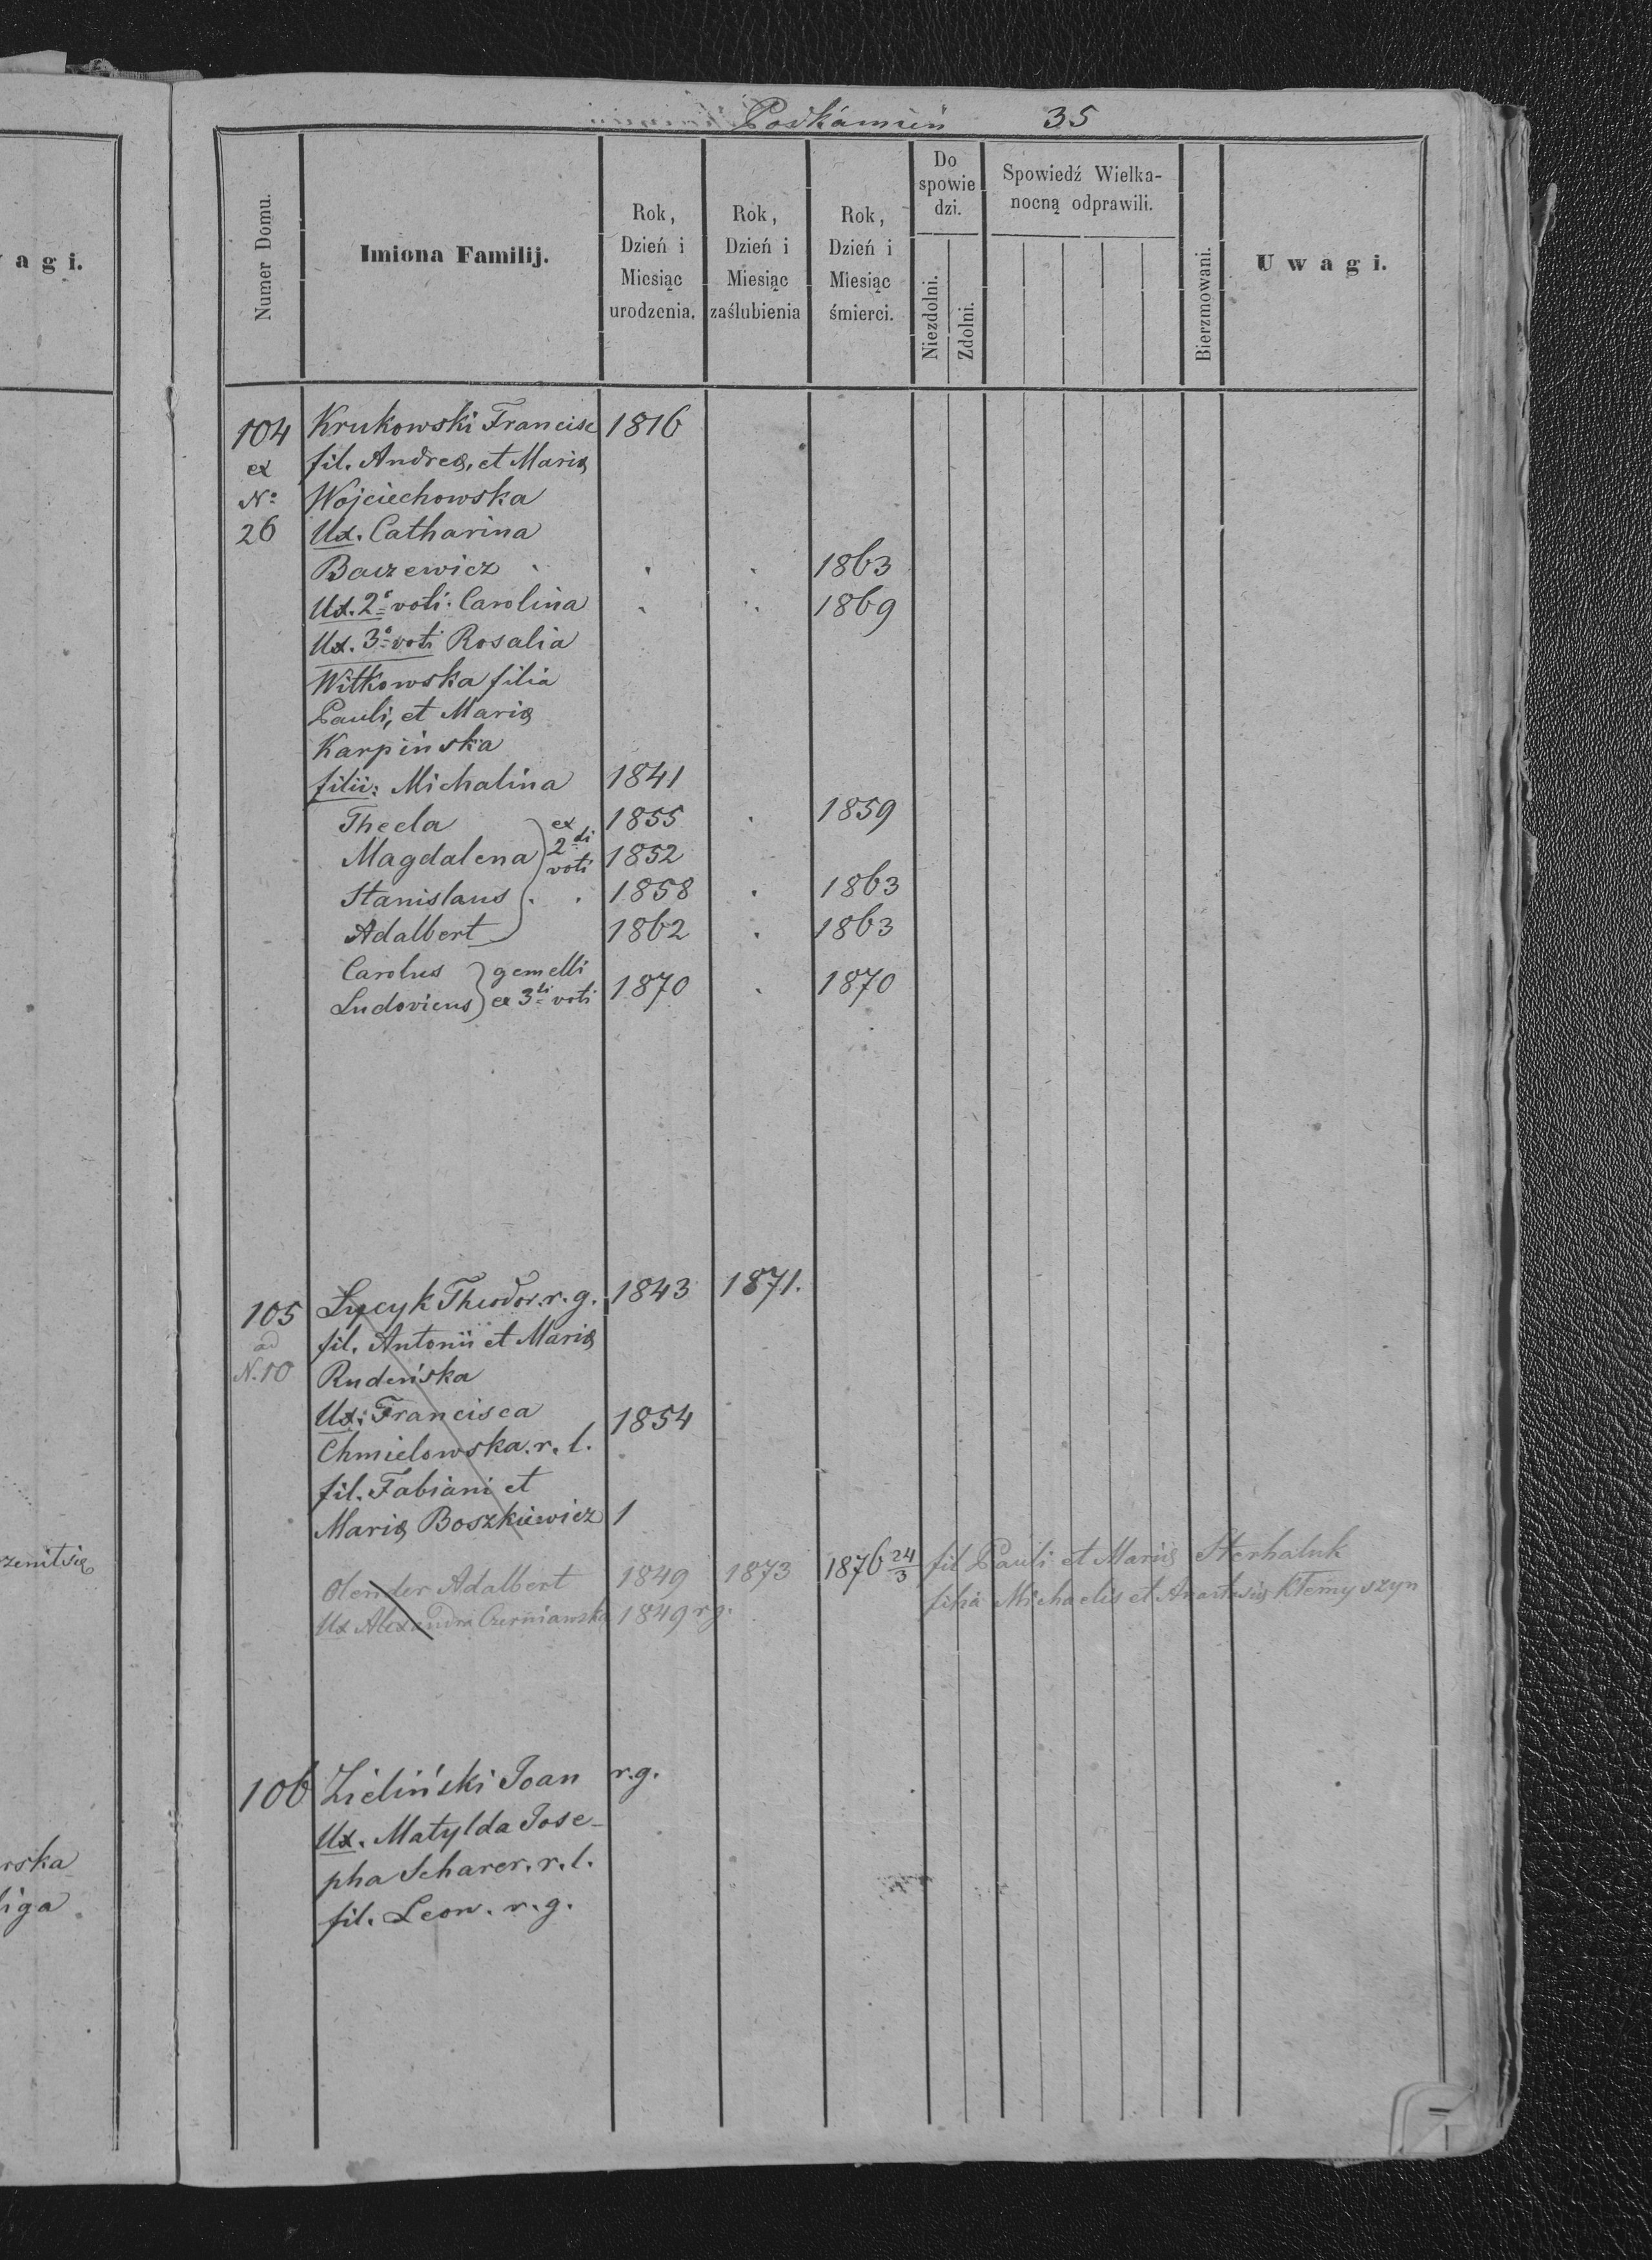 Podkamień 35
Numer Domu.
Imiona Familij.
Rok, Dzień i Miesiąc urodzenia.
Rok, Dzień i Miesiąc zaślubienia
Rok, Dzień i Miesiąc śmierci.
Do spowie dzi.
Niezdolni.
Zdolni.
Spowiedź Wielka-
nocną odprawili.
Bierzmowani.
Uwagi.
agi.
104 Krukowski Francisc 1816
ex fil. Andreæ, et Mariæ
No Wojciechowska
26 Ux. Catharina
Baczewicz 1863
Ux. 2o voti: Carolina 1869
Ux. 3o voti Rosalia
Witkowska filia
Pauli, et Mariæ
Karpińska
filii: Michalina 1841
Thecla ex 1855 1859
Magdalena 2di voti 1852
Stanislaus 1858 1863
Adalbert 1862 1863
Carolus gemelli
Ludovicus ex 3tii voti 1870 1870
105 Łycyk Theodor. r. g. 1843 1871.
ad fil. Antonii et Mariæ
N. 10 Rudeńska
Ux: Francisca 1854
Chmielowska. r. l.
fil. Fabiani et
Mariæ Boszkiewicz 1
Olender Adalbert 1849 1873 1876 24/3 fil Pauli et Mariæ Sterhaluk
Ux Alexandra Czerniawska 1849 r g. filia Michaelis et Anastasiæ Klemyszyn
106 Zieliński Joan r. g.
Ux. Matylda Jose-
pha Scharer. r. l.
fil. Leon. r. g.
zenit się
rska
liga